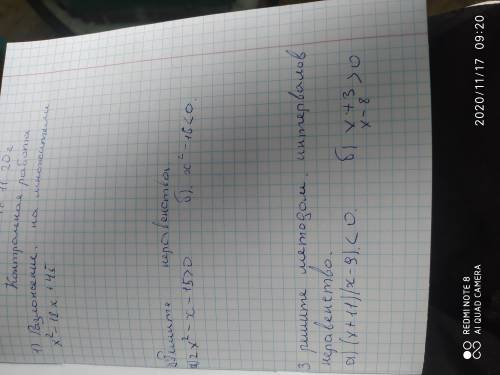 11 20 г
Контрольная работа
1) Разложение на множители
x²-12x+45
2) Решите неравенства
а) 2x²-x-15>0 б) x²-16<0.
3 решите методом интервалов
неравенство.
а) (x+11)(x-9)<0. б) x+3/x-8>0
REDMI NOTE 8
AI QUAD CAMERA
2020/11/17 09:20